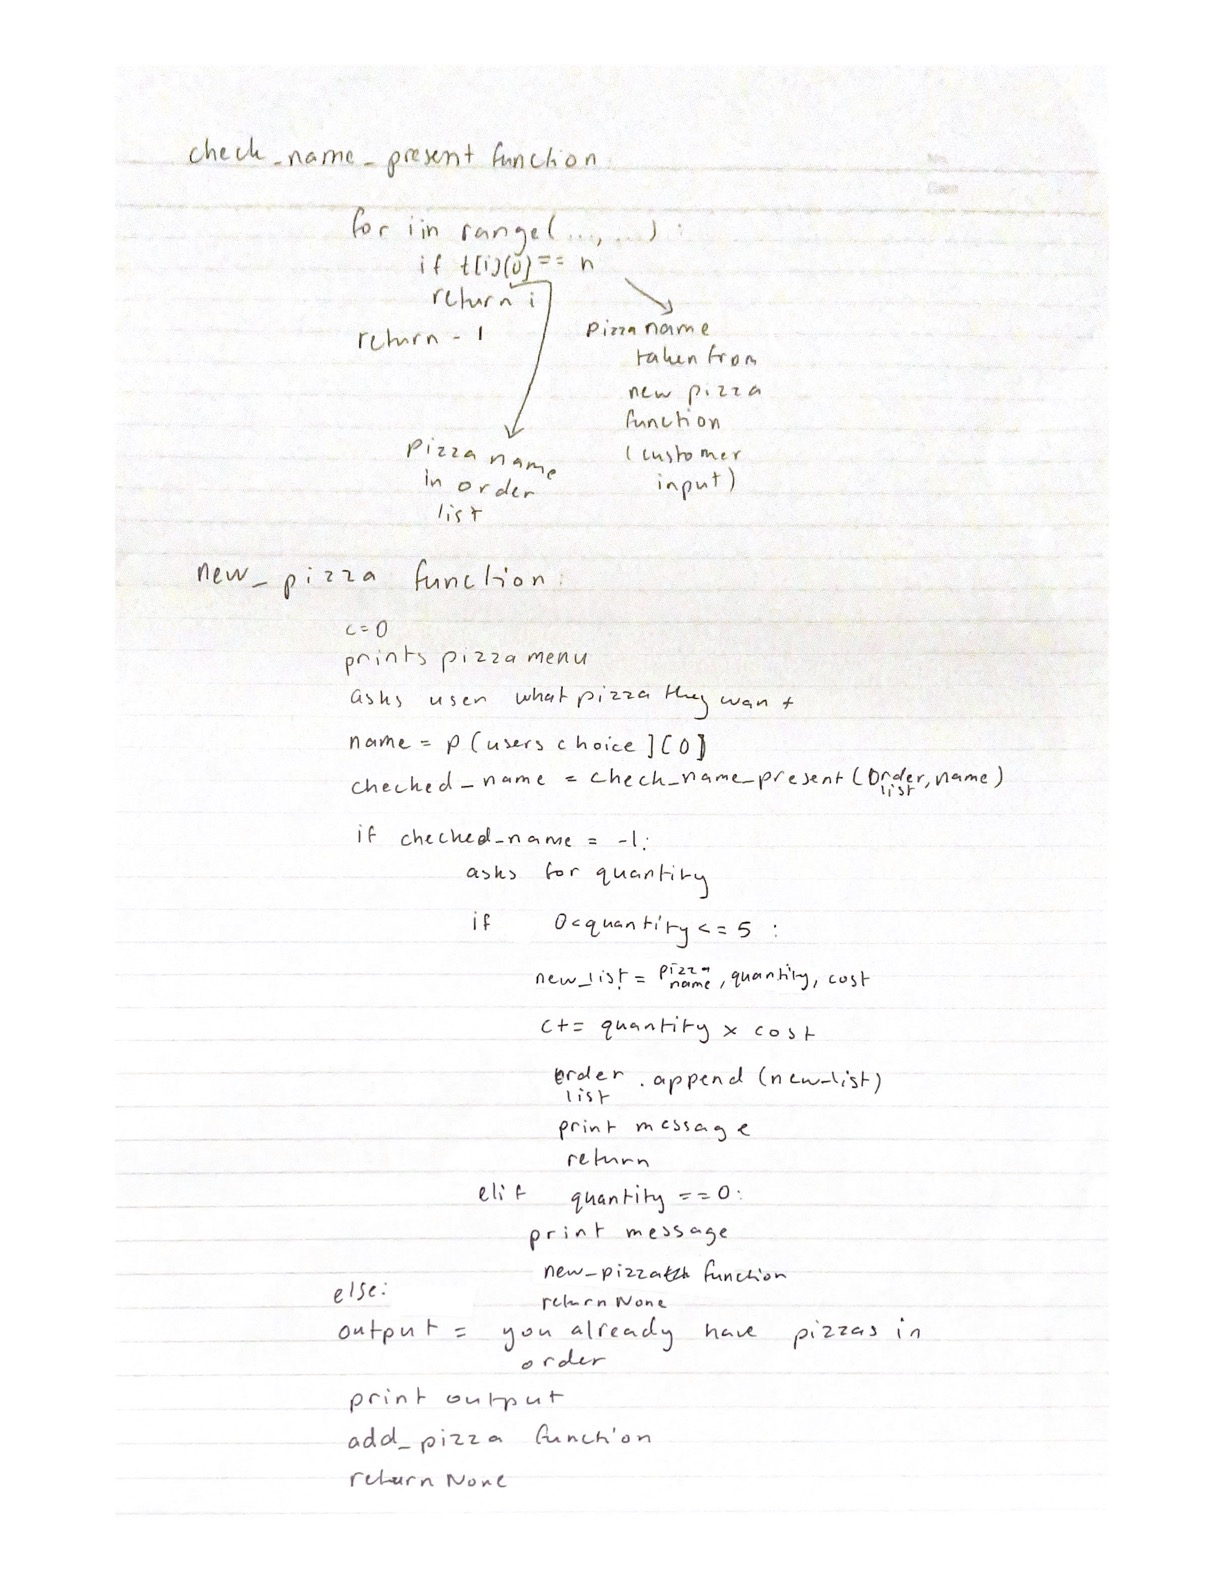 check_name_present function:
for i in range(...,...):
if t[i][0] == n
return i
return -1
pizza name
taken from
new pizza
function
(customer
input)
pizza name
in order
list
new_pizza function:
c=0
prints pizza menu
asks user what pizza they want
name = p[users choice][0]
checked_name = check_name_present(order list, name)
if checked_name = -1:
asks for quantity
if 0<quantity<=5 :
new_list = pizza name, quantity, cost
c+= quantity x cost
order list.append(new_list)
print message
return
elif quantity ==0:
print message
new_pizza function
return None
else:
output = you already have pizzas in
order
print output
add_pizza function
return None